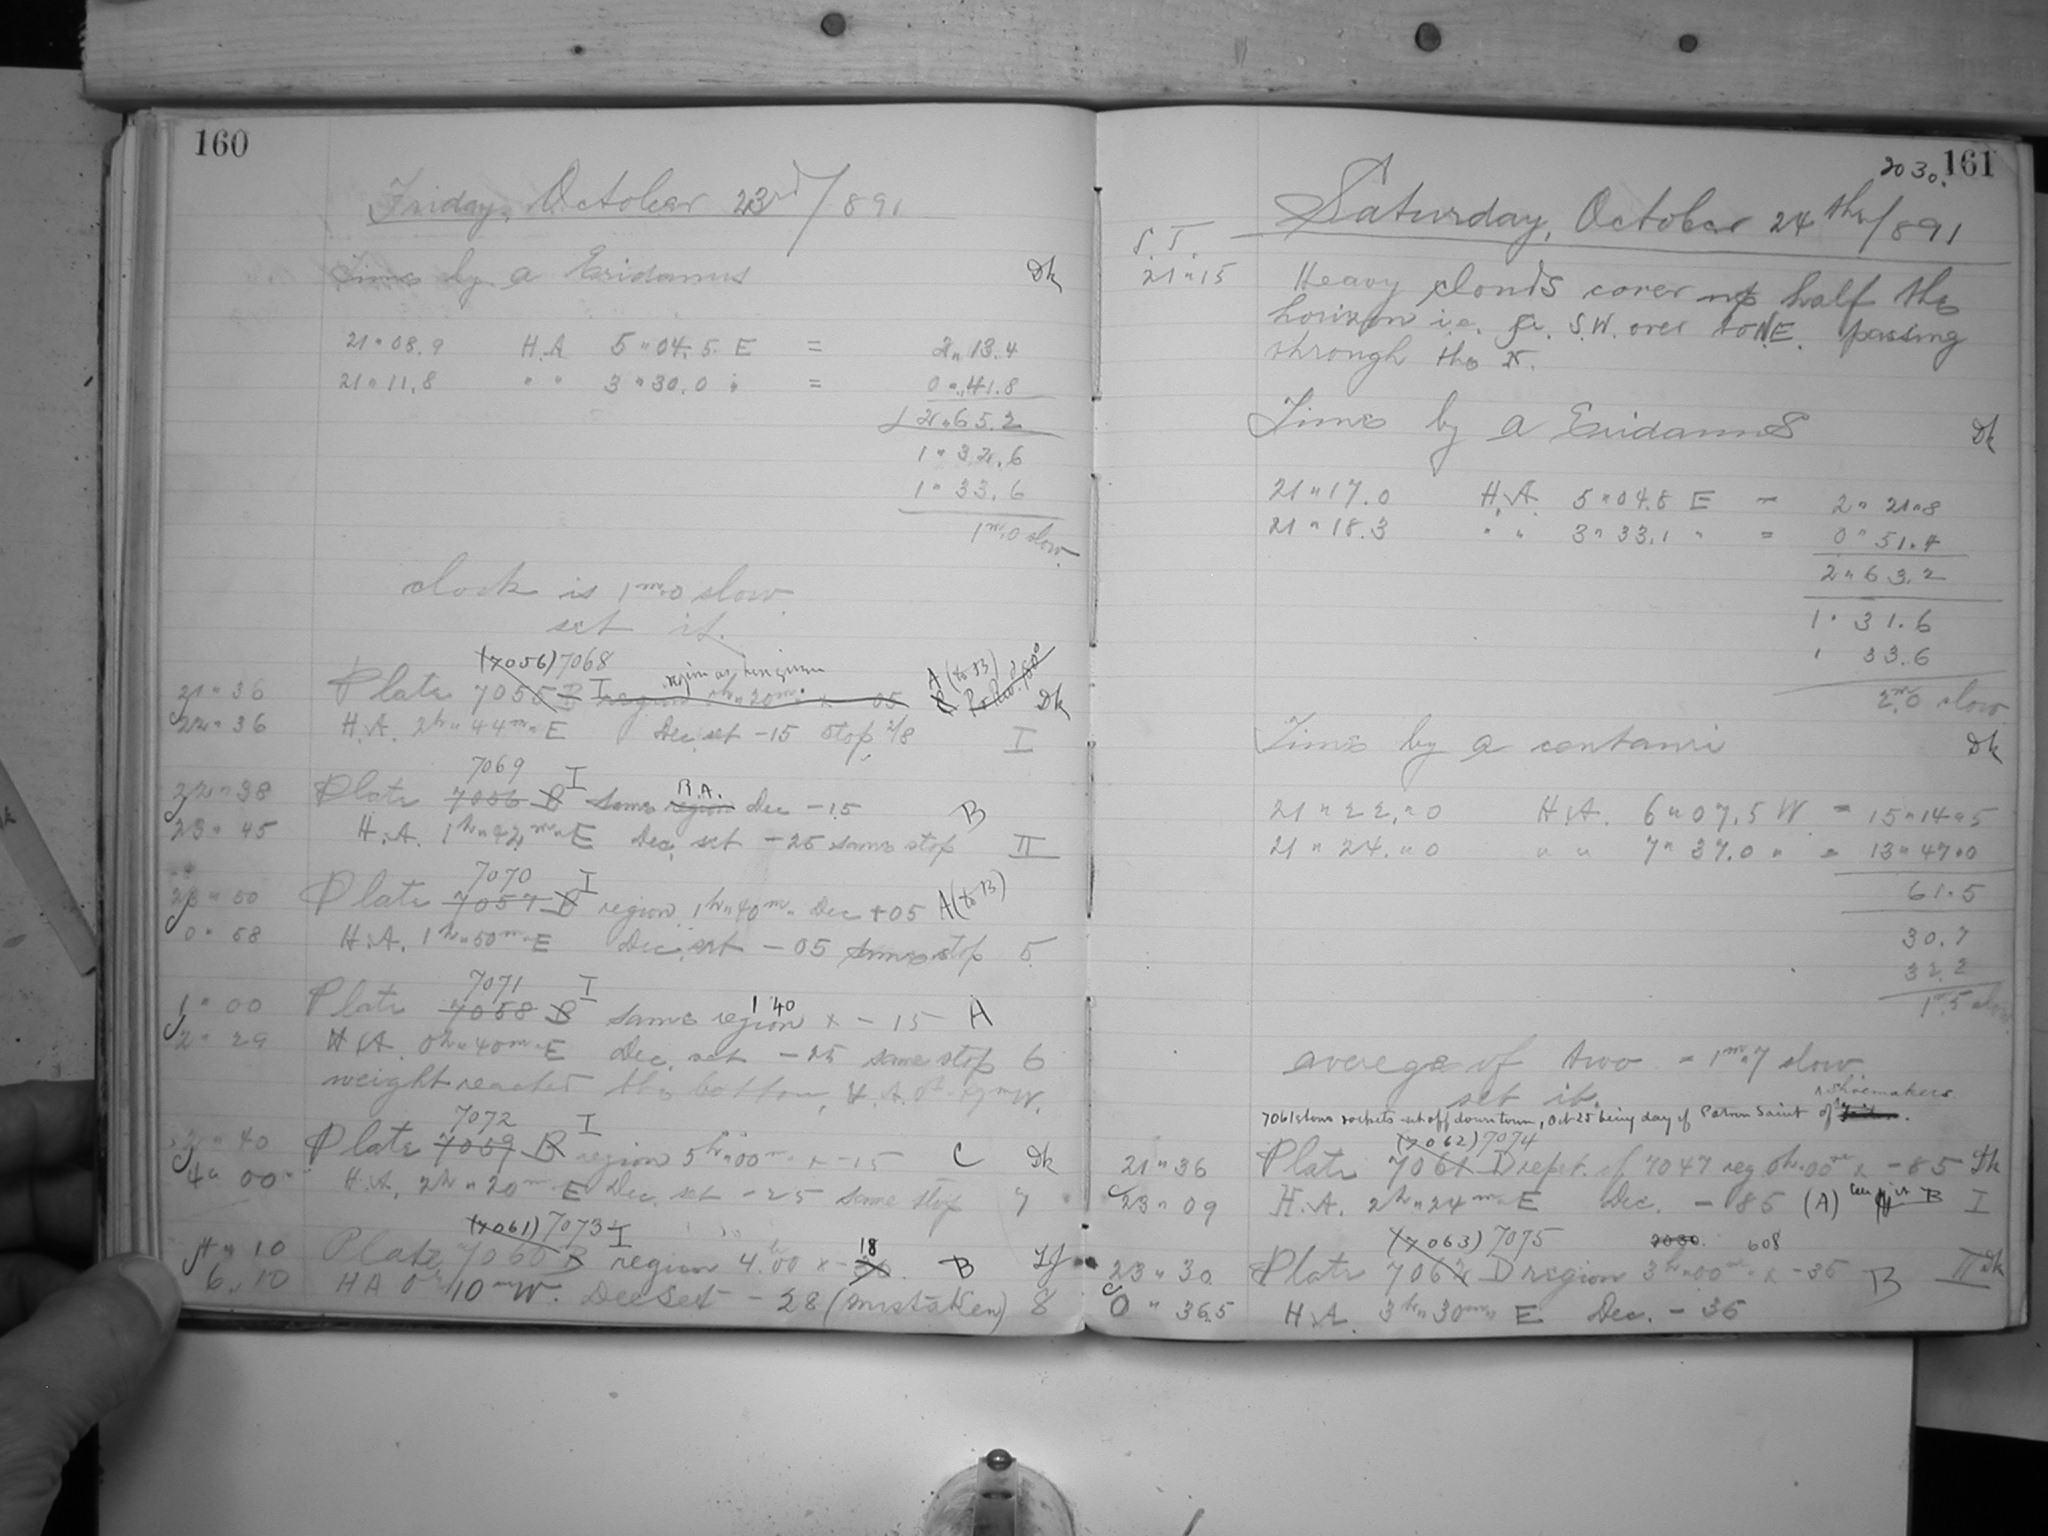 160
Friday, October 23rd/891
Time by a Eridanus Dk
21 " 08.9 H.A. 5 " 04.5 E = 2 " 13.4
21 " 11.8 " " 3 " 30.0 " = 0 " 41.8
2 " 65.2
1 " 32.6
1 " 33.6
1m.0 slow
clock is 1m.0 slow
set it.
(7056) 7068
region as hen given A (to B)
21 " 36 Plate 7055 B I region 20m x 05 Dk
22 " 36 H.A. 2h " 44m " E Dec. set -15 stop 2/8 I
7069 I R.A.
22 " 38 Plate 7056 B same region Dec -15 B
23 " 45 H.A. 1h " 42m " E Dec. set -25 same stop II
7070 I
23 " 50 Plate 7057 B region 1h " 40m " Dec +05 A (to B)
0 " 58 H.A. 1h " 50m " E Dec. set -05 same stop 5
7071 I 1 40
1 " 00 Plate 7058 B same region x -15 A
2 " 29 H.A. 0h " 40m " E Dec. set -25 same stop 6
weight reached the bottom, H.A. W.
7072 I
2 " 40 Plate 7059 B region 5h " 00m x -15 C Dk
4 " 00 H.A. 2h " 20m E Dec. set -25 same stop 7
(7061) 7073 I 18
4 " 10 Plate 7060 B region 4.h00 x - B
6 . 10 HA 0h 10m W. Dec set -28 (mistaken) 8
2030. 161
Saturday, October 24th/891
S.T.
21 " 15 Heavy clouds cover up half the
horizon i.e. fr. S.W. over to N.E. passing
through the
Time by a Eridanus Dk
21 " 17.0 H.A. 5 " 04.8 E = 2 " 21 " 8
21 " 18.3 " " 3 " 33.1 " = 0 " 51.4
2 " 63.2
1 " 31.6
1 33.6
2m.0 slow
Time by a centauri Dk
21 " 22. " 0 H.A. 6 " 07.5 W = 15 " 14 " 5
21 " 24. " 0 " " 7 " 37.0 " = 13 " 47 " 0
61.5
30.7
32.2
1m.5 slow
average of two = 1m " 7 slow
set it. shoemakers
7061 shows rockets set off down town, Oct 25 being day of Patron Saint of
(7062) 7074
21 " 36 Plate 7061 D repet. of 7047 reg 0h " 00m x -85 Dk
23 " 09 H.A. 2h " 24m " E Dec. -85 (A) B I
(7063) 7075 2030. 608
23 " 30 Plate 7062 D region 3h " 00m " x -35 B II Dk
0 " 36.5 H.A. 3h " 30m " E Dec. -36